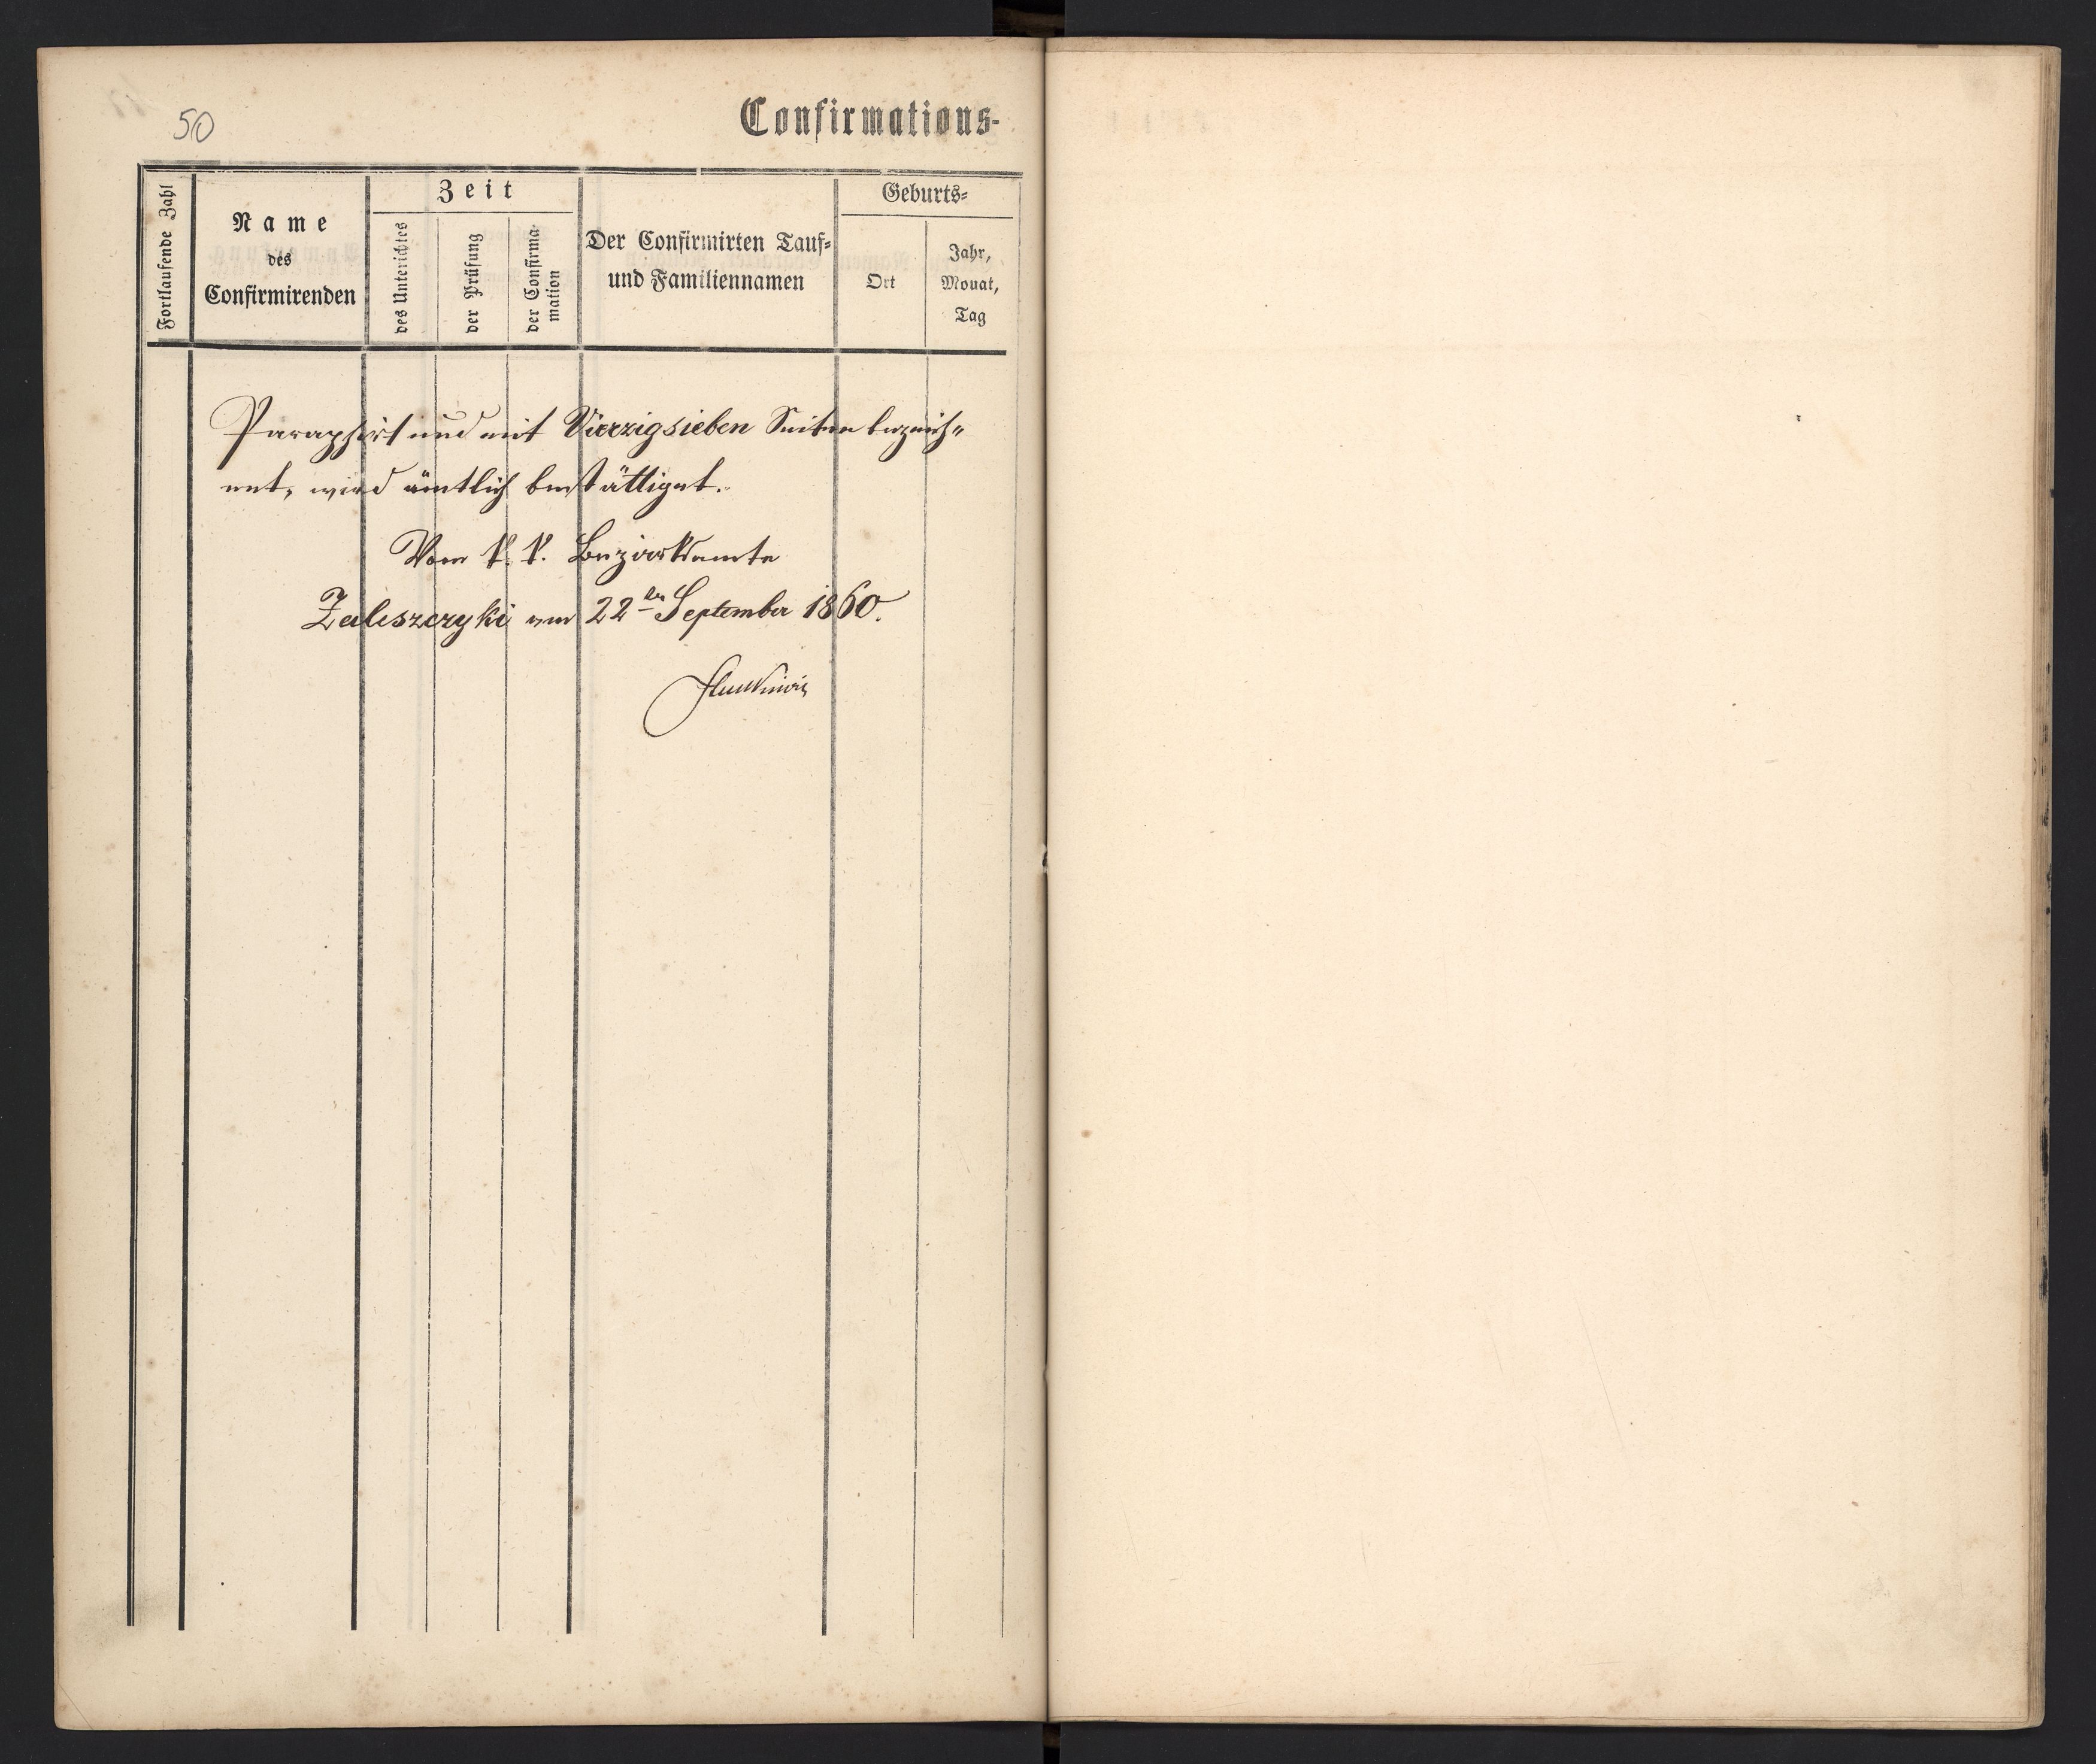 50
Confirmations-
Fortlaufende Zahl
Name
des
Confirmirenden
Zeit
des Unterichtes
der Prüfung
der Confirma-
mation
Der Confirmirten Tauf-
und Familiennamen
Geburts-
Ort
Jahr,
Monat,
Tag
Paraphirt und mit Vierzigsieben Seiten bezeich-
net, wird ämtlich bestättiget.
Vom k. k. Bezirksamte
Zaleszczyki am 22ten September 1860.